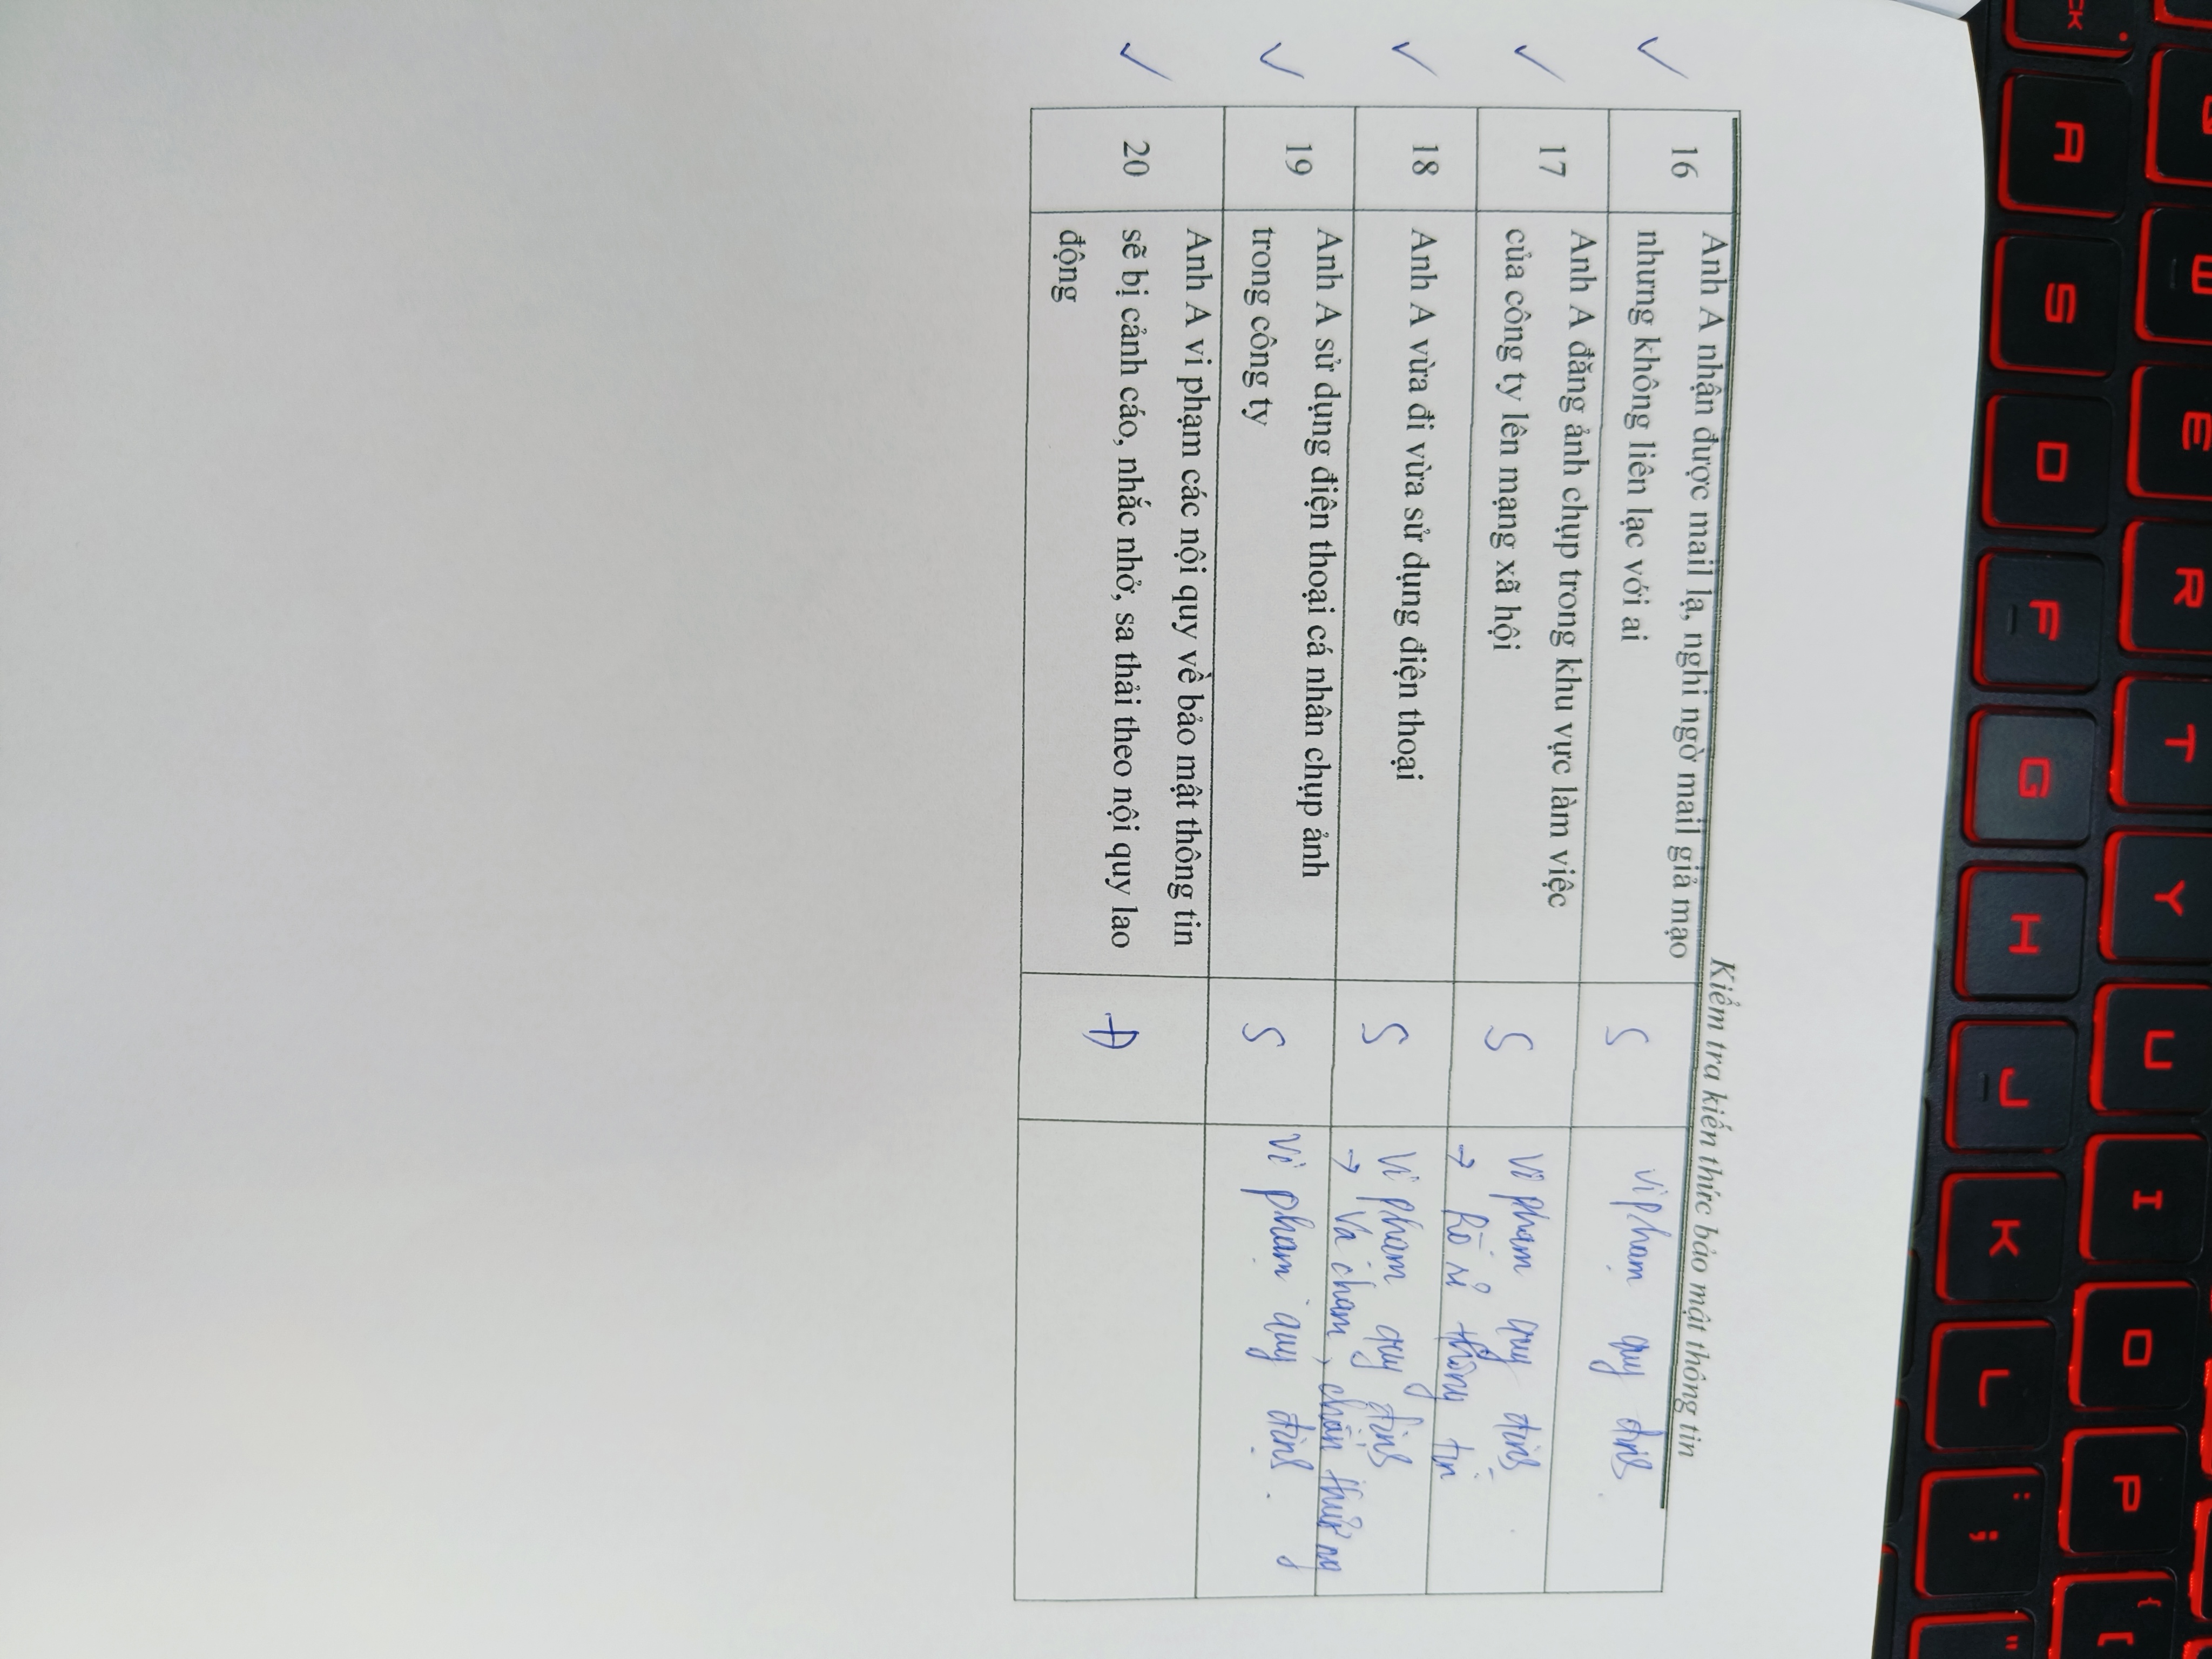 Kiểm tra kiến thức bảo mật thông tin
✓ 16 Anh A nhận được mail lạ, nghi ngờ mail giả mạo
nhưng không liên lạc với ai
S
Vi phạm quy định.
✓ 17 Anh A đăng ảnh chụp trong khu vực làm việc
của công ty lên mạng xã hội
S
Vi phạm quy định
→ Rò rỉ thông tin
✓ 18 Anh A vừa đi vừa sử dụng điện thoại
S
Vi phạm quy định
→ Va chạm, chấn thương
✓ 19 Anh A sử dụng điện thoại cá nhân chụp ảnh
trong công ty
S
Vi phạm quy định.
✓ 20 Anh A vi phạm các nội quy về bảo mật thông tin
sẽ bị cảnh cáo, nhắc nhở, sa thải theo nội quy lao
động
Đ
CK
A
S
D
F
G
H
J
K
L
: ;
"
E
R
T
Y
U
I
O
P
{ [